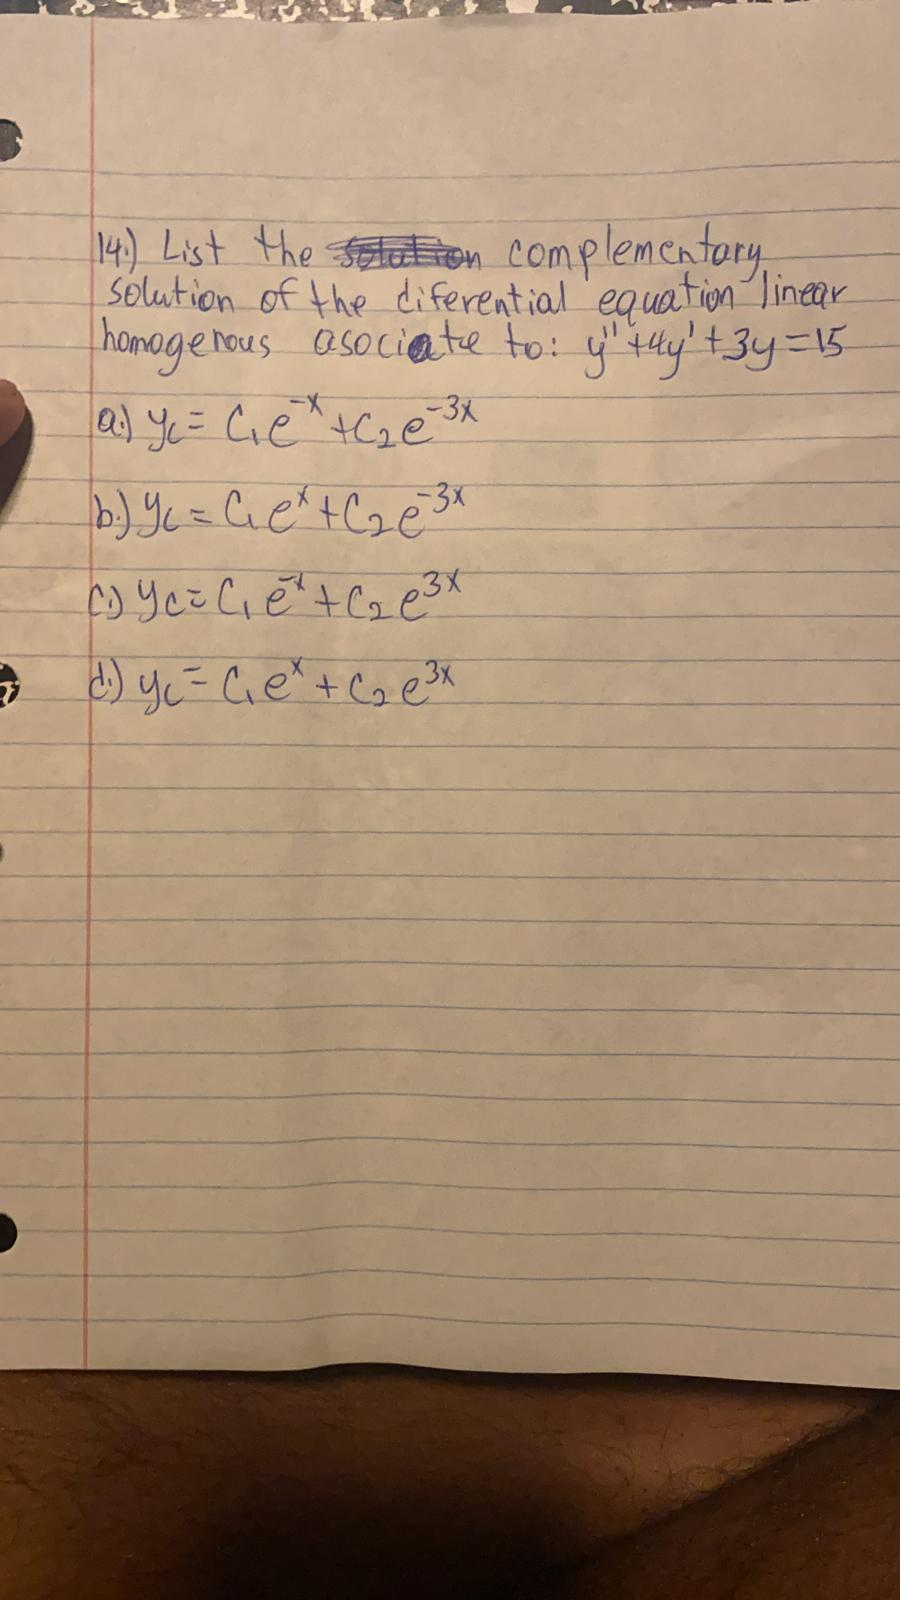 14.) List the solution complementary
solution of the diferential equation linear
homogenous asociate to: y''+4y'+3y=15
a.) yc= C₁e⁻ˣ+C₂e⁻³ˣ
b.) yc= C₁eˣ+C₂e⁻³ˣ
c.) yc= C₁e⁻ˣ+C₂e³ˣ
d.) yc= C₁eˣ+C₂e³ˣ